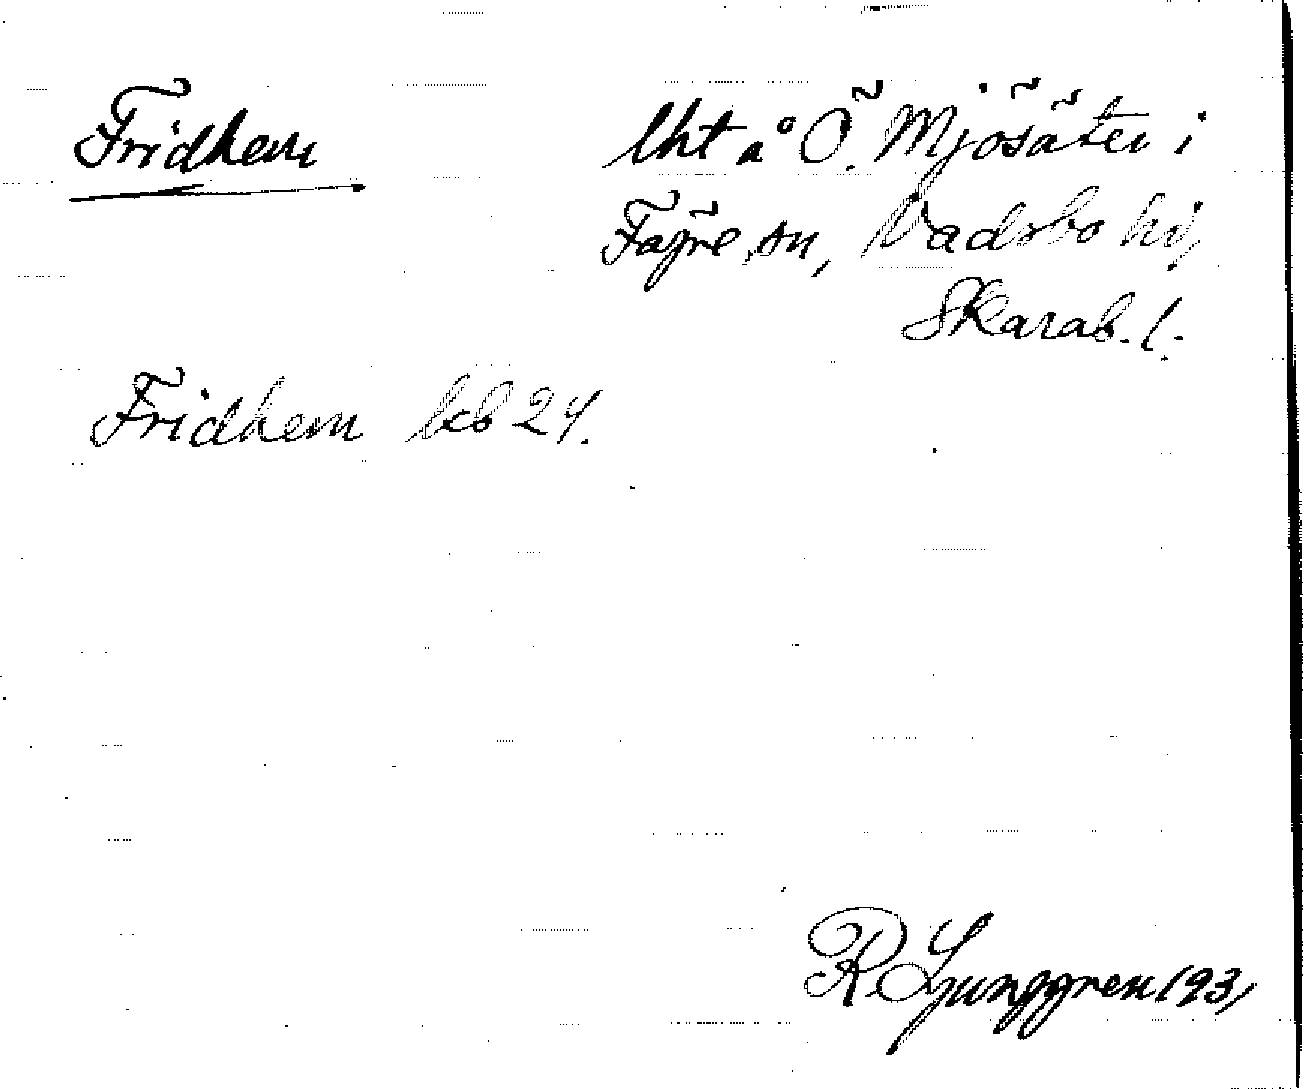 Fridhem
lht å Ö. Mjösäter i
Fägre sn, Vadsbo hd,
Skarab. l.
Fridhem kb 24.
R Ljunggren 1931